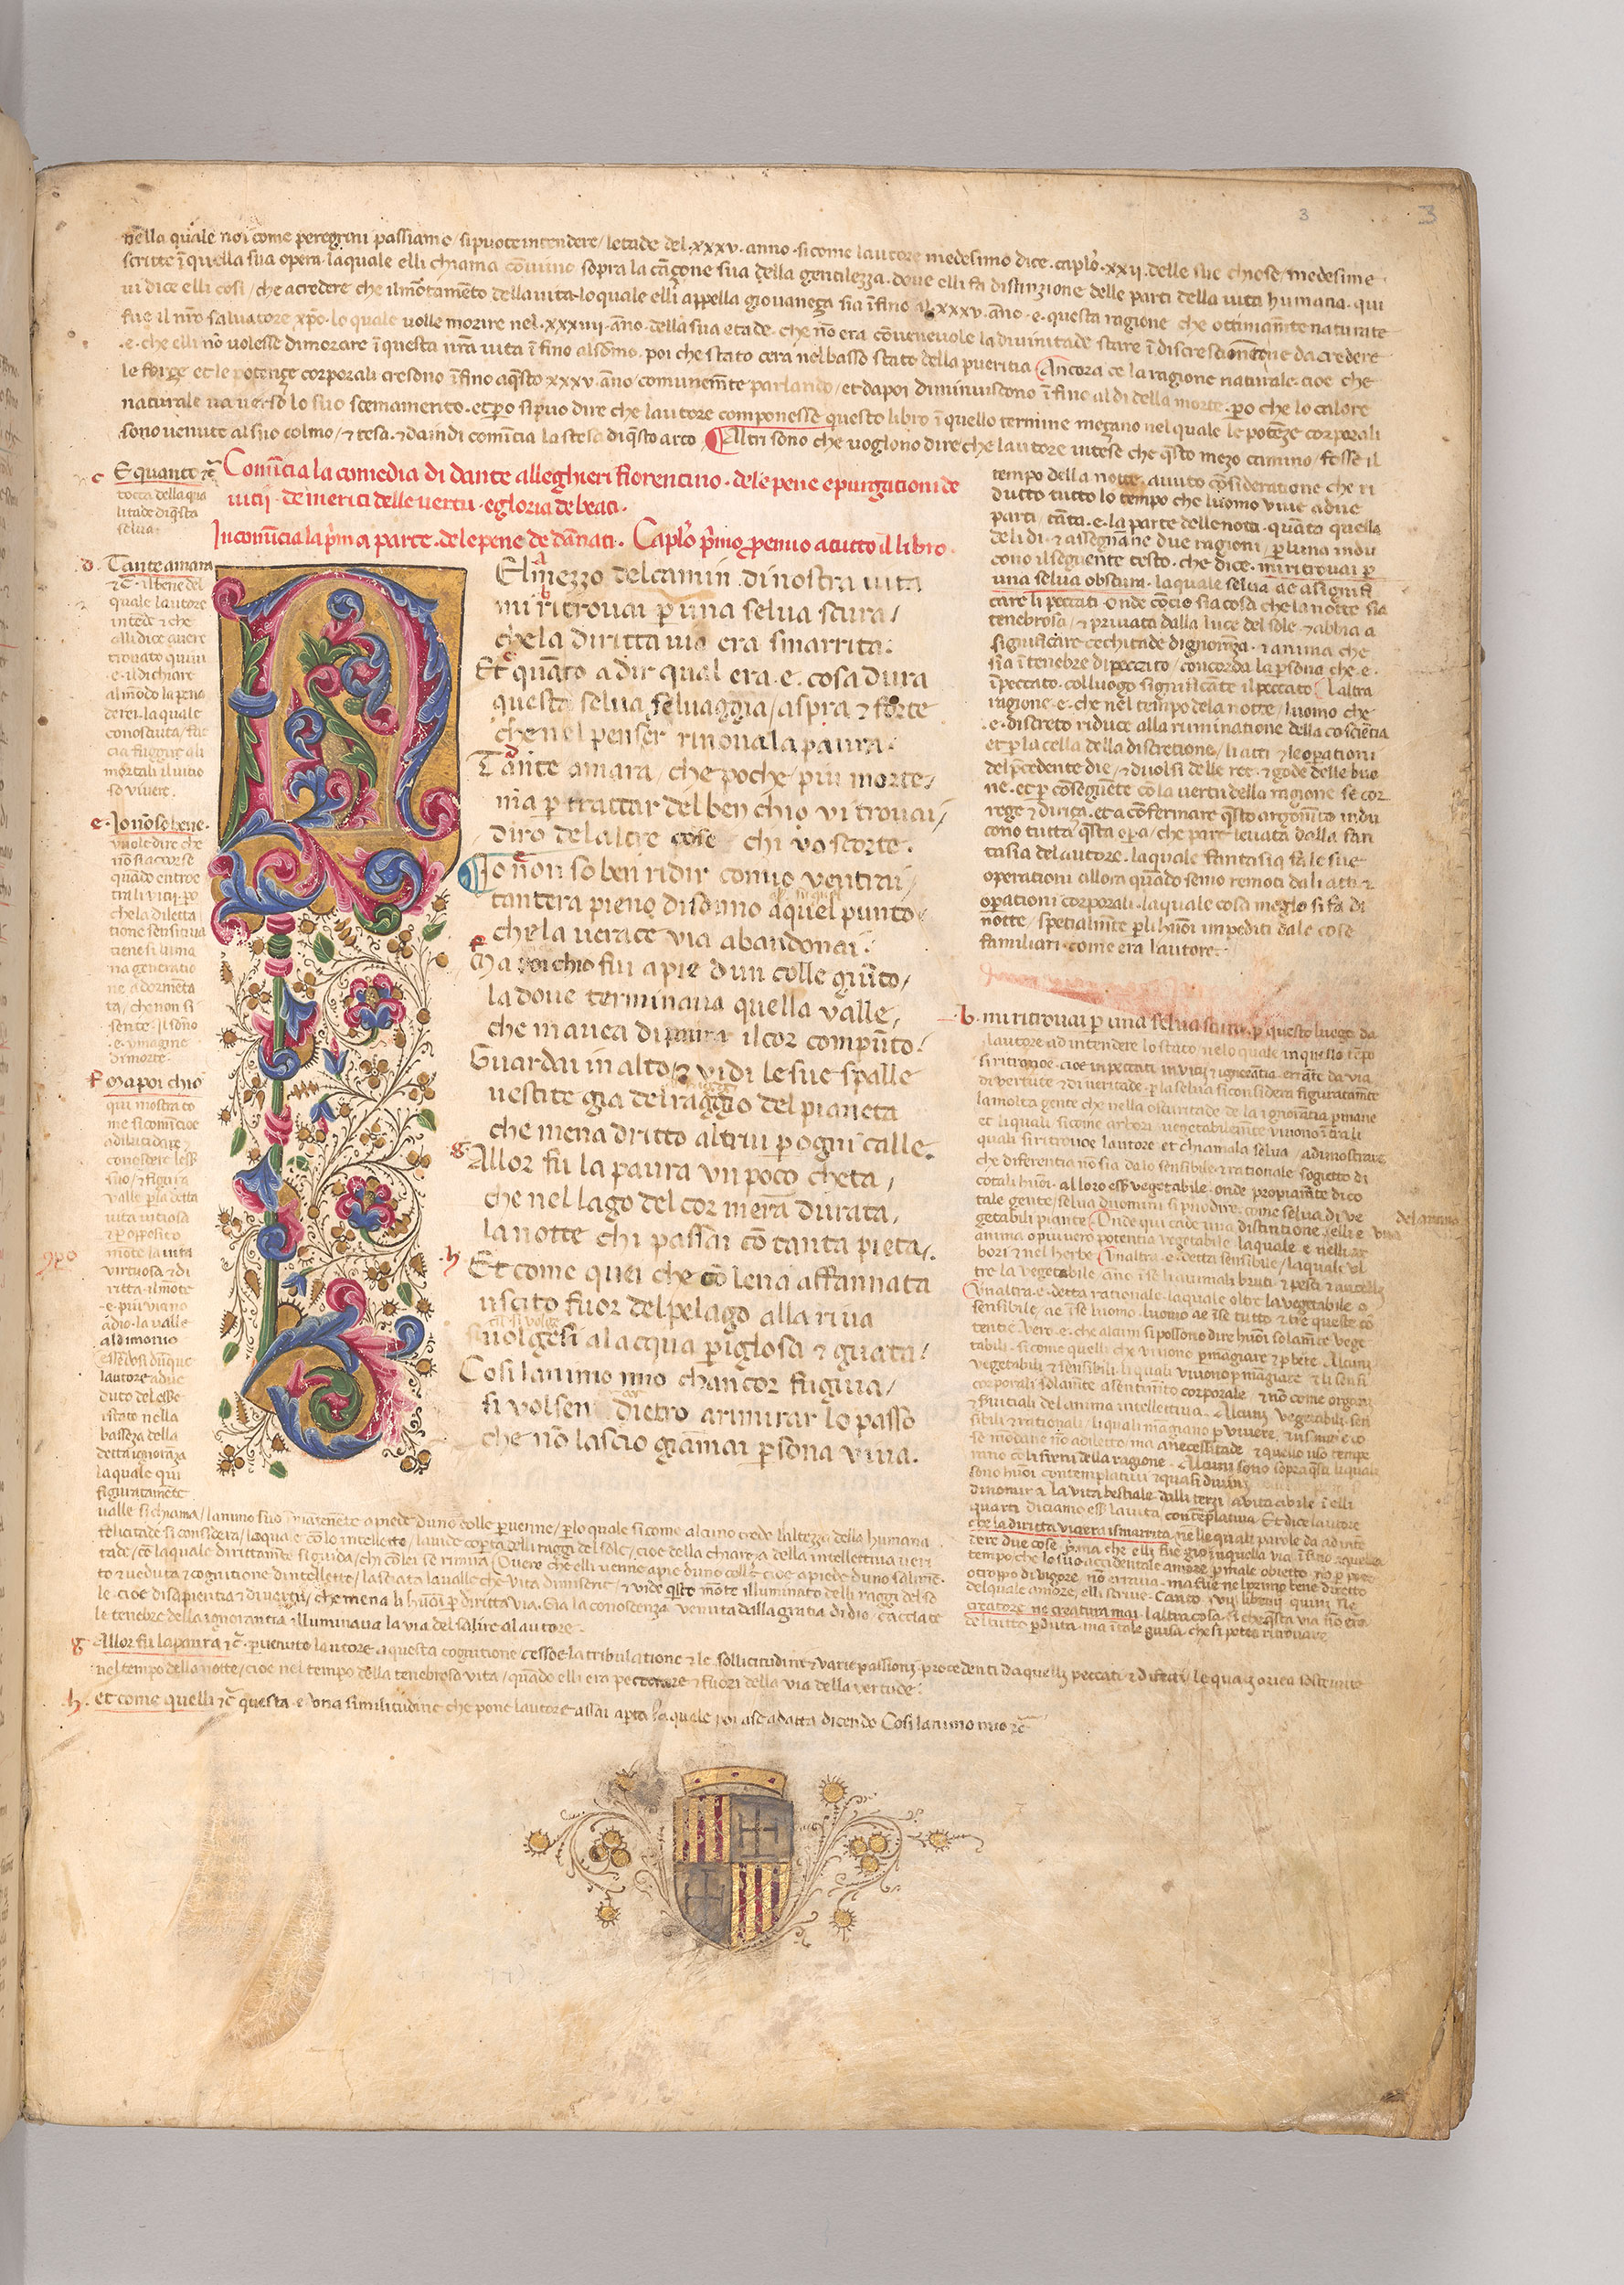 3 3
nella quale noi come peregrini passiamo / si puote intendere / letade del .xxxv. anno . si come lautore medesimo dice . caplo . xxij . delle sue chiose / medesime
scritte ī quella sua opera . la quale elli chiama cōvivio sopra la cāçone sua della gentilezza . dove elli fa distinzione delle parti della vita humana . qui
vi dice elli cosi / che a credere che il mōtamēto della vita lo quale elli appella giovaneça sia īfino al .xxxv. āno .e. questa ragione che ottimamēte naturate
fue il nr̄o salvatore xp̄o . lo quale volle morire nel .xxxiiij. āno . della sua etade . che nō era cōvenevole la divinitade stare ī discresc
.e. che elli nō volesse dimorare ī questa nr̄a vita īfino al sōmo . poi che stato cera nel basso stato della pueritia Ancora ce la ragione naturale . cioe che
le forze et le potenze corporali crescono īfino a q̄sto xxxv. āno / comunemēte parlando / et dapoi diminuiscono īfine al di della morte . po che lo calore
naturale va verso lo suo scemamento . et po si puo dire che lautore componesse questo libro ī quello termine meçano nel quale le potēze corporali
sono venute al suo colmo / ⁊ tesa . ⁊ da indi comīcia la stesa di q̄sto arco . Altri sono che vogliono dire che lautore intese che q̄sto mezo camino / fosse il
c E quanto ⁊c̄
tocca della qua
litade di q̄sta
selva
Comīcia la comedia di dante alleghieri fiorentino . dele pene e purgationi de
vitij . de meriti delle vertu . e gloria de beati .
Incomīcia la p̄ma parte . dele pene de dānati . Caplo p̄mo proemio a tutto il libro .
d . Tante amara
⁊c̄ . il bene del
quale lautore
intēde ⁊ che
alli dice avere
trovato quivi
.e. il dichiare
al mōdo la pena
de rei . la quale
conosciuta / fac
cia fuggire ali
mortali il vitio
so vivere .
e . Io nō so bene .
vuole dire che
nō si acorse
quādo entroe
tra li vitij . po
che la diletta
tione sensitiva
tiene si luma
na generatio
ne adormēta
ta / che non si
sente . il sōno
.e. ymagine
di morte .
f Ma poi chio
qui mostra co
me si comīcioe
a dilucidare ⁊
conoscere less̄
suo / ⁊ figura
valle p la detta
vita vitiosa
⁊ p opposito
mōte la vita
virtuosa ⁊ di
ritta . il mōte
.e. piu vicino
a dio . la valle
al dimonio
essēdosi dūque
lautore a due
duto del esse
i stato nella
bassezza della
detta ignorāza
la quale qui
figuratamēte
a
El mezzo del camin di nostra vita
b
mi ritrovai p una selva scura /
che la diritta via era smarrita :
c
Et quāto a dir qual era .e. cosa dura
questa selva selvaggia / aspra ⁊ forte
che nel penser rinova la paura .
d
Tante amara / che poche / piu morte /
ma p trattar del ben chio vi trovai /
diro del altre cose chi vo scorte .
Io non so ben ridir comio ventrai /
tantera pieno di sonno a quel punto
che la verace via abandonai .
f
Ma poi chio fui a pie dun colle giūto /
la dove terminava quella valle /
che mavea di paura il cor compūto .
Guardai in alto / ⁊ vidi le sue spalle
vestite gia de raggio del pianeta
che mena dritto altrui p ogni calle .
g
Allor fu la paura un poco cheta /
che nel lago del cor mera durata /
la notte chi passai cō tanta pieta .
h
Et come quei che cō lena affannata
uscito fuor del pelago alla riva
volgesi al acqua piglosa ⁊ guata .
Cosi lanimo mio chancor fugiva /
si volsen dietro a rimirar lo passo
che nō lascio giāmai psona viva .
tempo della notte . avuto cōsideratione che ri
dutto tutto lo tempo che luomo vive a due
parti / tāta .e. la parte delle notti . quāto quella
deli di . ⁊ assegnane due ragioni / p luna indu
cono il seguente testo . che dice . mi ritrovai p
una selva obscura . la quale selva ae a signifi
care li peccati . onde cōcio sia cosa che la notte sia
tenebrosa / ⁊ privata dalla luce del sole . ⁊ abbia a
significare cechitade dignorāza . ⁊ anima che
sia ī tenebre di peccato / concorda la psona che .e.
īpeccato . col luogo significāte il peccato Laltra
ragione .e. che nel tempo dela notte / luomo che
.e. discreto riduce alla ruminatione della cosciētia
et p la cella della discretione / li atti ⁊ le opationi
del pcedente die / ⁊ duolsi delle ree . ⁊ gode delle buo
ne . et p cōseguēte cō la vertu della ragione se cor
rege ⁊ diriça . et a cōfermare q̄sto argomēto indu
cono tutta q̄sta opa / che pare levata dalla fan
tasia del autore . la quale fantasia fa le sue
operationi allora quādo semo remoti da li atti ⁊
opationi corporali . la quale cosa meglo si fa di
notte / spetialmēte p li huoi impediti dale cose
familiari . come era lautore .
b . mi ritrovai p una selva scura . p questo luogo da
lautore ad intendere lo stato nelo quale in quello tēpo
si ritrovoe . cioe in peccati in vitij ⁊ ignorātia . errāte da via
di vertute ⁊ di veritade . p la selva si considera figuratamēte
la molta gente che nella oscuritade de la ignorātia pmane
et li quali si come arbori vegetabilemēte vivono ītra li
quali si ritrovoe lautore . et chiamala selva / a dimostrare
che differentia nō sia da lo sensibile ⁊ rationale sogietto di
cotali huoi . al loro ess̄ vegetabile . onde propiamēte dico
tale gente / selva duomini si puo dire . come selva di ve
getabili piante Onde qui cade una distintione . elli e una del anima
anima o piu vero potentia vegetabile la quale e nelli ar
bori ⁊ nel herbe . Unaltra .e. detta sensibile / la quale ol
tre la vegetabile / āno ī se li animali bruti ⁊ pesci ⁊ aucelli
Unaltra .e. detta rationale . la quale oltre la vegetabile o
sensibile . ae ī se luomo . luomo ae ī se tutto ⁊ tre queste po
tentie Vero .e. che alcuni si possono dire huoi solamēte vege
tabili . si come quelli che vivono p māgiare ⁊ p bere Alcuni
vegetabili ⁊ sensibili . li quali vivono p māgiare ⁊ li sensi
corporali solamēte a sentimēto corporale ⁊ nō come organi
⁊ sinitiali del anima intellectiva . Alcuni vegetabili sen
sibili ⁊ rationali / li quali māgiano p vivere
a necessitade ⁊ quello uso tempe
rano cō li freni della ragione . Alcuni sono sopra q̄sti li quali
sono huoi contemplativi ⁊ quasi divini
la vita bestiale dalli terzi la vita civile ī elli
quarti diciamo ess̄ la vita contēplativa . Et dice lautore
che la diritta via era ismarrita / ne lle quali parole da ad intē
dere due cose . p̄ma che elli fue gia ī quella via
tempo che lo suo accidentale amore p male obietto
o troppo di vigore nō errava . ma fue nel primo bene diretto
del quale amore , elli scrive . Canto . xvij
creatore ne creatura mai . laltra cosa . si che q̄sta via nō era
del tutto pduta . ma ī tale guisa che si potea ritrovare
valle si chiama / lanimo suo a piede duno colle pvenne / p lo quale si come alcuno crede laltezza della humana
felicitade si considera / la qua e cō lo intelletto / la vide copta delli raggi del sole / cioe della chiareza della intellettiva veri
tade / cō la quale dirittamēte si guida / chi cōlei se rimira Overe che elli venne a pie duno colle cioe a piede duno salimē
to ⁊ veduta ⁊ cognitione dintelletto / lasciata la valle che vita dimiserie / ⁊ vide q̄sto mōte illuminato delli raggi del so
le . cioe di sapientia ⁊ di vertu / che mena li huoi p diritta via . Gia la conoscenza venuta dalla gratia di dio / cacciate
le tenebre della ignorantia ⁊ illuminava la via del salire al autore .
g Allor fu la paura ⁊c̄ . pvenuto lautore a questa cognitione cessoe la tribulatione ⁊ le sollicitudine ⁊ varie passioni precedenti da quelli peccati ⁊ difetti / le quai avea sostenute
nel tempo della notte / cioe nel tempo della tenebrosa vita / quādo elli era peccatore ⁊ fuori della via della vertude .
h . et come quelli ⁊c̄ questa .e. una similitudine che pone lautore assai apta la quale poi a se adatta dicendo Cosi lanimo mio ⁊c̄